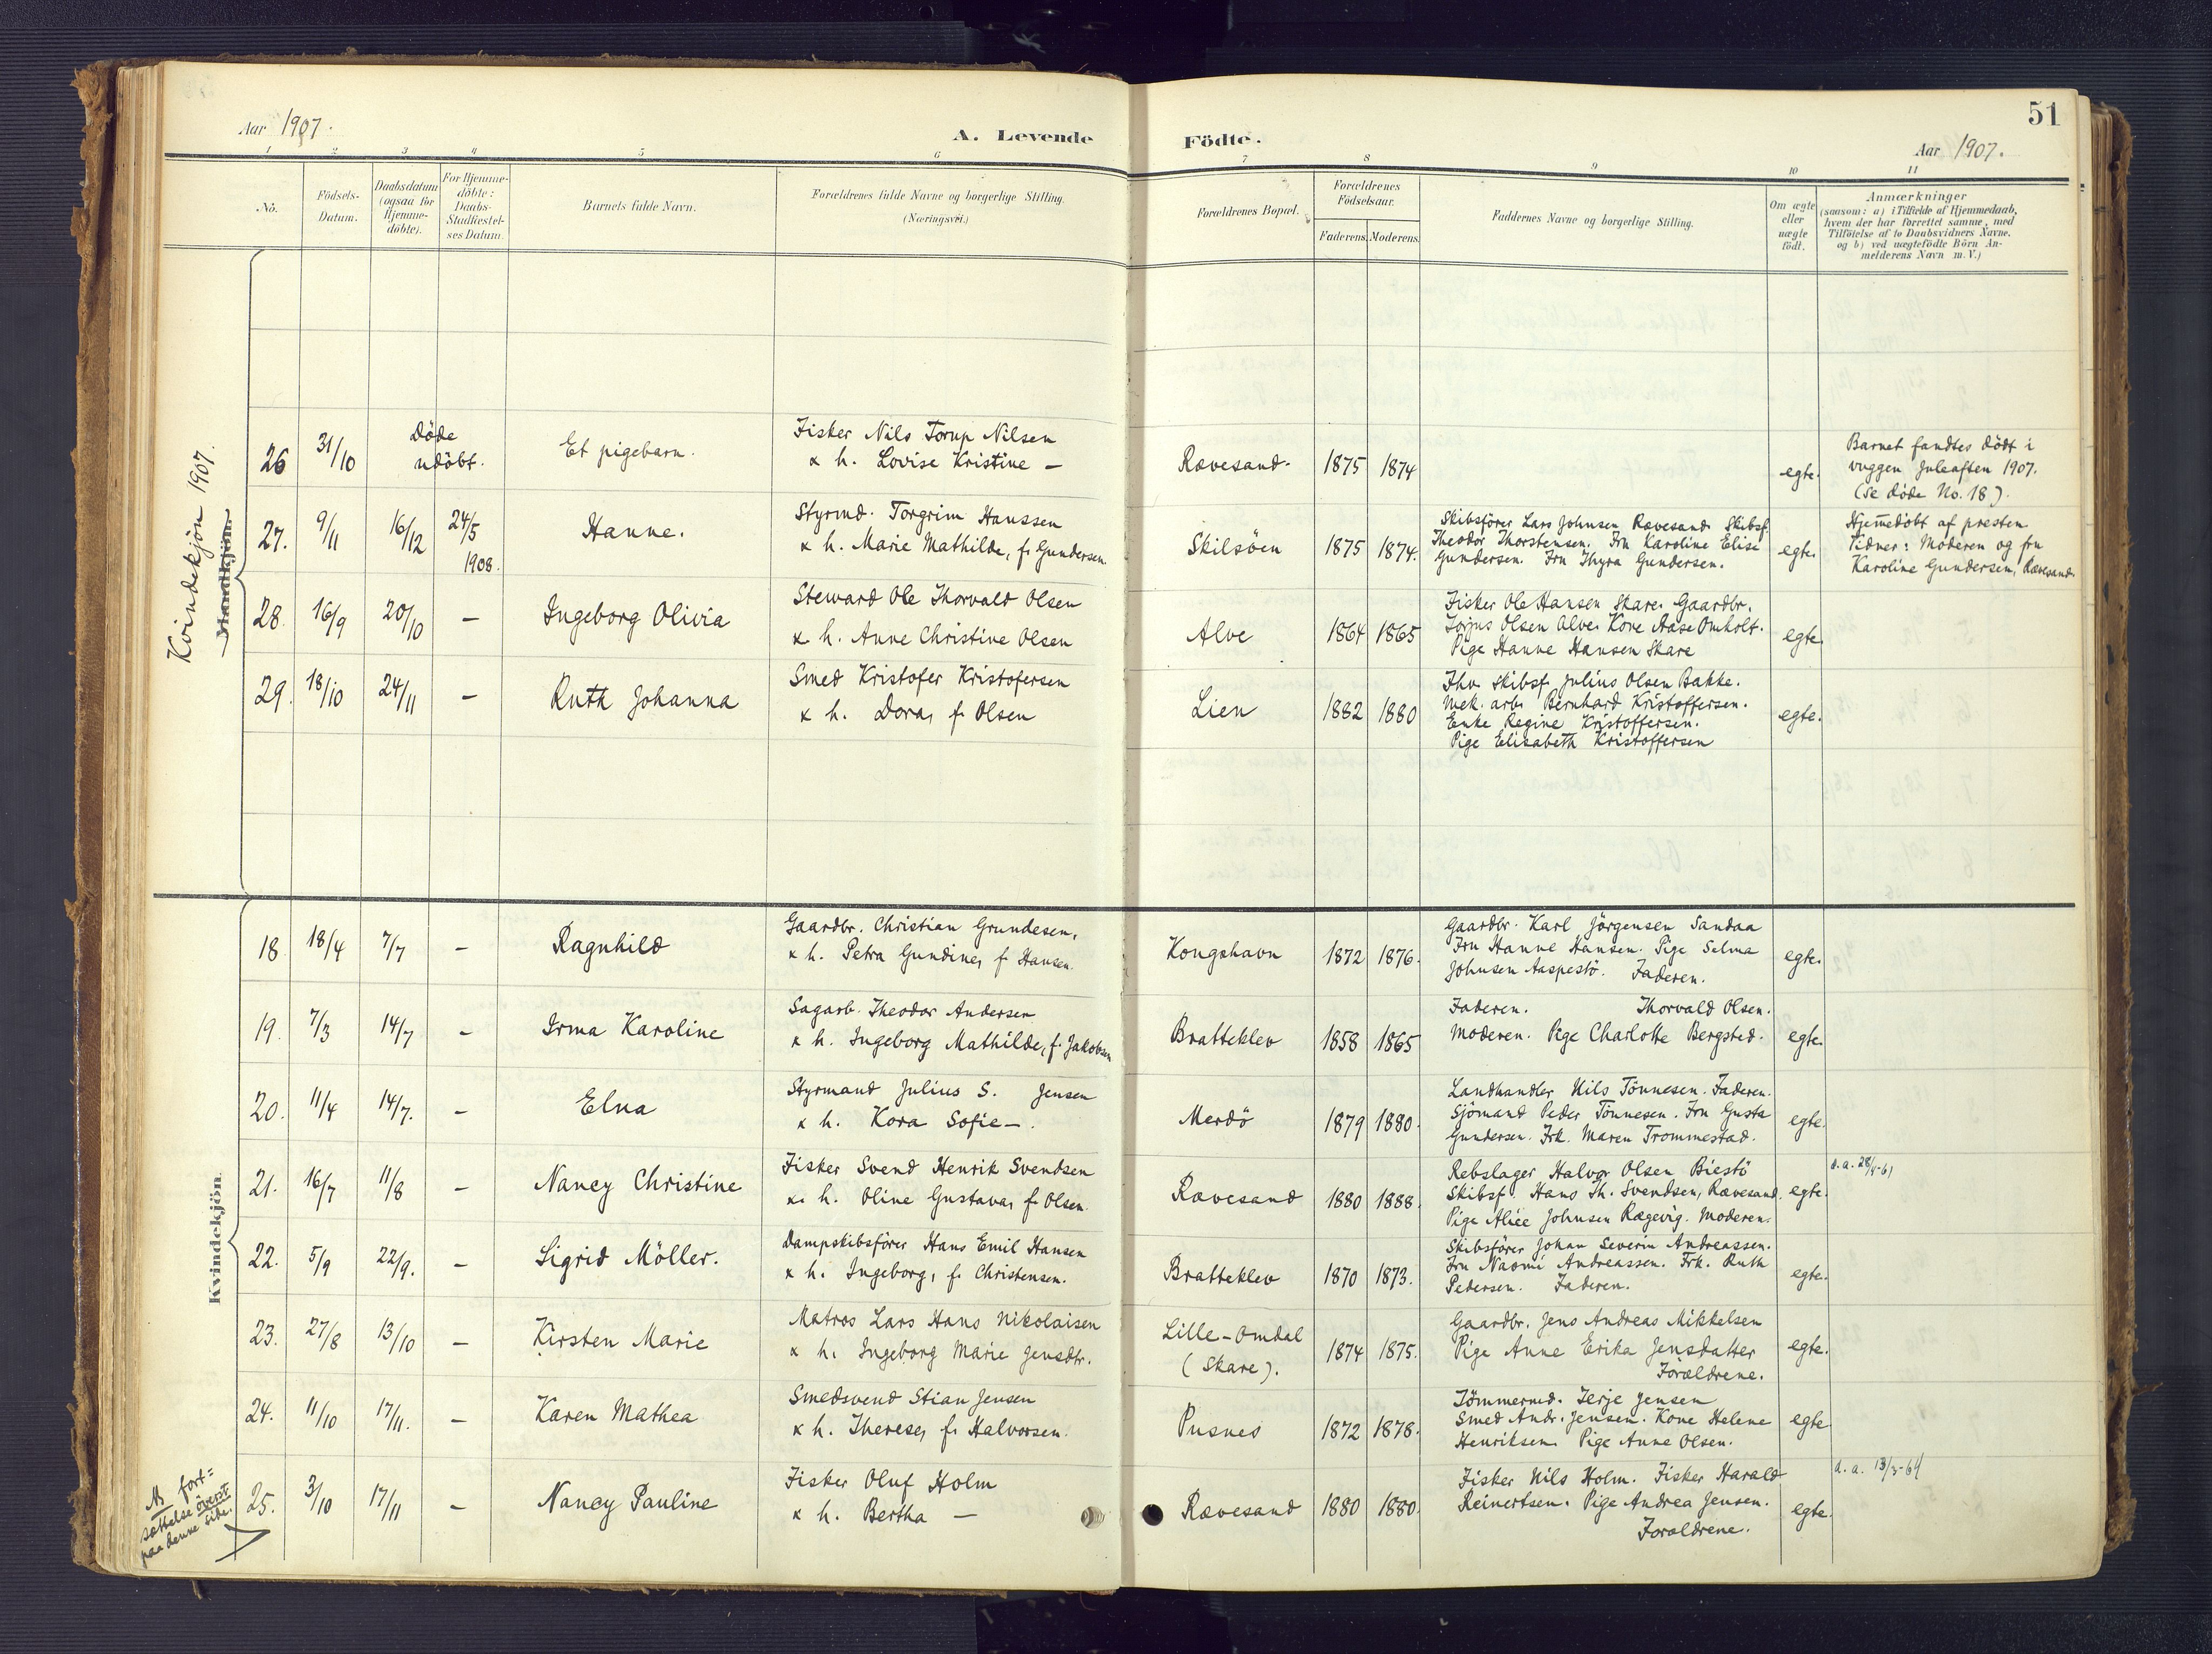 51
Aar 1907.
A. Levende Födte.
Aar 1907.
1 2 3 4 5 6 7 8 9 10 11
No.
Födsels-Datum.
Daabsdatum (ogsaa for Hjemmedöbte).
For Hjemmedöbte: Daabs-Stadfæstelses Datum.
Barnets fulde Navn.
Forældrenes fulde Navne og borgerlige Stilling.
(Næringsvei.)
Forældrenes Bopæl.
Forældrenes Födselsaar.
Faderens. Moderens.
Faddernes Navne og borgerlige Stilling.
Om ægte eller uægte födt.
Anmærkninger
(saasom: a) i Tilfælde af Hjemmedaab,
hvem der har forrettet samme, med
Tilföielse af to Daabsvidners Navne,
og b) ved uægtefödte Börn An-
melderens Navn m. V.)
Kvindekjön 1907.
Mandkjön.
26 31/10 Döde udöbt. Et pigebarn.
Fisker Nils Torup Nilsen
& h. Lovise Kristine —
Rævesand. 1875 1874 egte.
Barnet fandtes dödt i
vuggen juleaften 1907.
(se döde No. 18).
27. 9/11 16/12 24/5 1908. Hanne.
Styrmd. Torgrim Hanssen
& h. Marie Mathilde, f. Gundersen.
Skilsöen 1875 1874.
Skibsförer Lars Johnsen Rævesand. Skibsf.
Theodor Thorstensen. Fru Karoline Elise
Gundersen. Fru Thyra Gundersen.
egte.
Hjemedöbt af presten
Vidner: Moderen og fru
Karoline Gundersen, Rævesand.
28. 16/9 20/10 — Ingeborg Olivia
Steward Ole Thorvald Olsen
& h. Anne Christine Olsen
Alve 1864 1865
Fisker Ole Hansen Skare. Gaardbr.
Jorgus Olsen Alve. Kone Aase Omholt.
Pige Hanne Hansen Skare
egte.
29. 18/10 24/11 — Ruth Johanna
Smed Kristofer Kristofersen
& h. Dora, f. Olsen
Lien 1882 1880
Fhv. skibsf. Julius Olsen Bakke.
Mek. arb. Bernhard Kristoffersen.
Enke Regine Kristoffersen.
Pige Elisabeth Kristoffersen
egte.
Kvindekjön.
18 18/4 7/7 — Ragnhild
Gaardbr. Christian Grundesen,
& h. Petra Gundine, f. Hansen.
Kongshavn 1872 1876.
Gaardbr. Karl Jörgensen Sandaa
Fru Hanne Hansen. Pige Selma
Johnsen Aaspestö. Faderen.
egte.
19. 7/3 14/7 — Irma Karoline
Sagarb. Theodor Andersen
& h. Ingeborg Mathilde, f. Jakobsen
Bratteklev 1858 1865
Faderen. Thorvald Olsen.
Moderen. Pige Charlotte Bergsted.
egte.
20. 11/4 14/7. — Elna
Styrmand Julius S. Jensen
& h. Kora Sofie —.
Merdö 1879 1880.
Landhandler Nils Tönnesen. Faderen.
Sjömand Peder Tönnesen. Fru Gusta
Gundersen. Frk. Maren Trommestad.
egte.
21. 16/7 11/8 — Nancy Christine
Fisker Svend Henrik Svendsen
& h. Oline Gustava, f. Olsen.
Rævesand 1880 1888.
Rebslager Halvor Olsen Biestö
Skibsf. Hans Th. Svendsen, Rævesand.
Pige Alice Johnsen Rægevig. Moderen.
egte.
d.a. 28/4-61
22. 5/9 22/9. — Sigrid Möller.
Dampskibsförer Hans Emil Hansen
& h. Ingeborg, f. Christensen.
Bratteklev 1870 1873.
Skibsförer Johan Severin Andreassen.
Fru Naomi Andreassen. Frk. Ruth
Pedersen. Faderen.
egte.
23. 27/8 13/10 — Kirsten Marie
Matros Lars Hans Nikolaisen
& h. Ingeborg Marie Jensdtr.
Lille-Omdal
(Skare).
1874 1875.
Gaardbr. Jens Andreas Mikkelsen
Pige Anne Erika Jensdatter
Forældrene.
egte.
24. 11/10 17/11. — Karen Mathea
Smedsvend Stian Jensen
& h. Therese, f. Halvorsen.
Pusnes 1872 1878.
Tömmermd. Terje Jensen
Smed Andr. Jensen. Kone Helene
Henriksen. Pige Anne Olsen.
egte
25. 3/10 17/11 — Nancy Pauline
Fisker Oluf Holm
& h. Bertha —
Rævesand 1880 1880.
Fisker Nils Holm. Fisker Harald
Reinertsen. Pige Andrea Jensen.
Forældrene.
egte.
d.a. 13/3-64
fort=
sættelse överst
paa denne side.